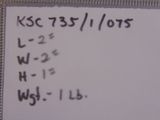 KSC 735/1/075
L - 2"
W - 2"
H - 1"
Wgt. - 1 Lb.